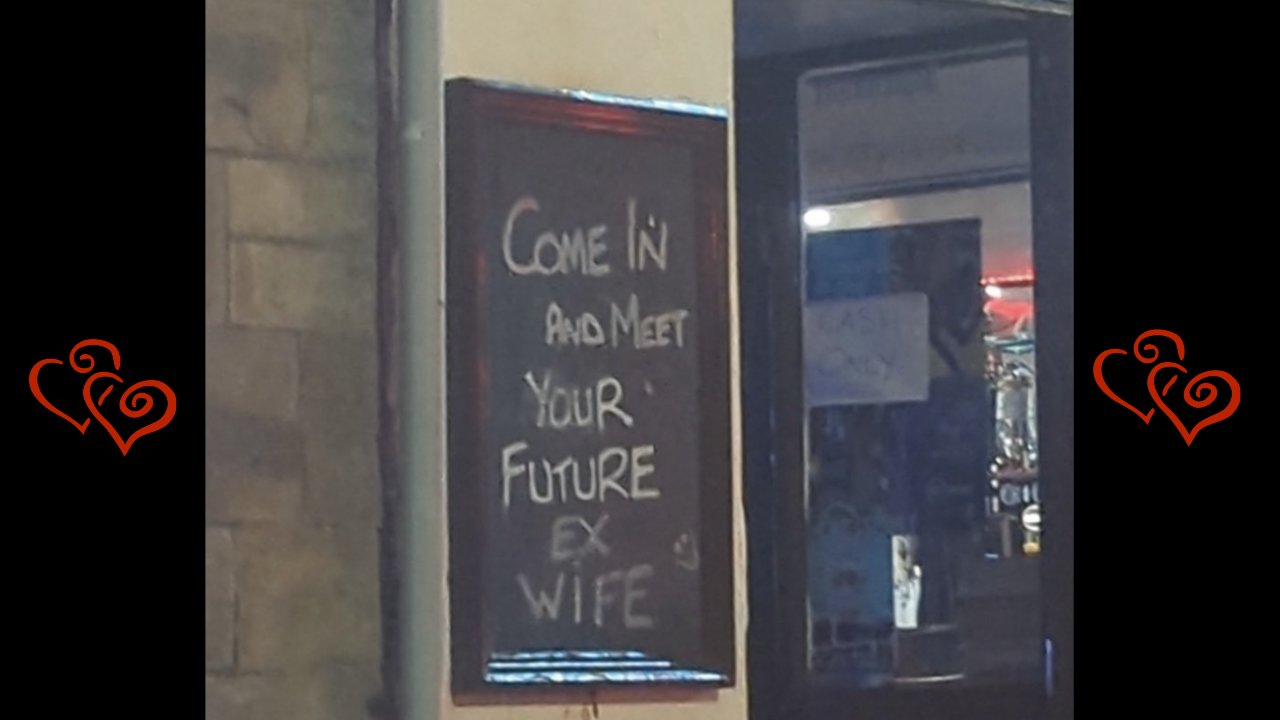 Come In
and Meet
Your
Future
Ex
Wife